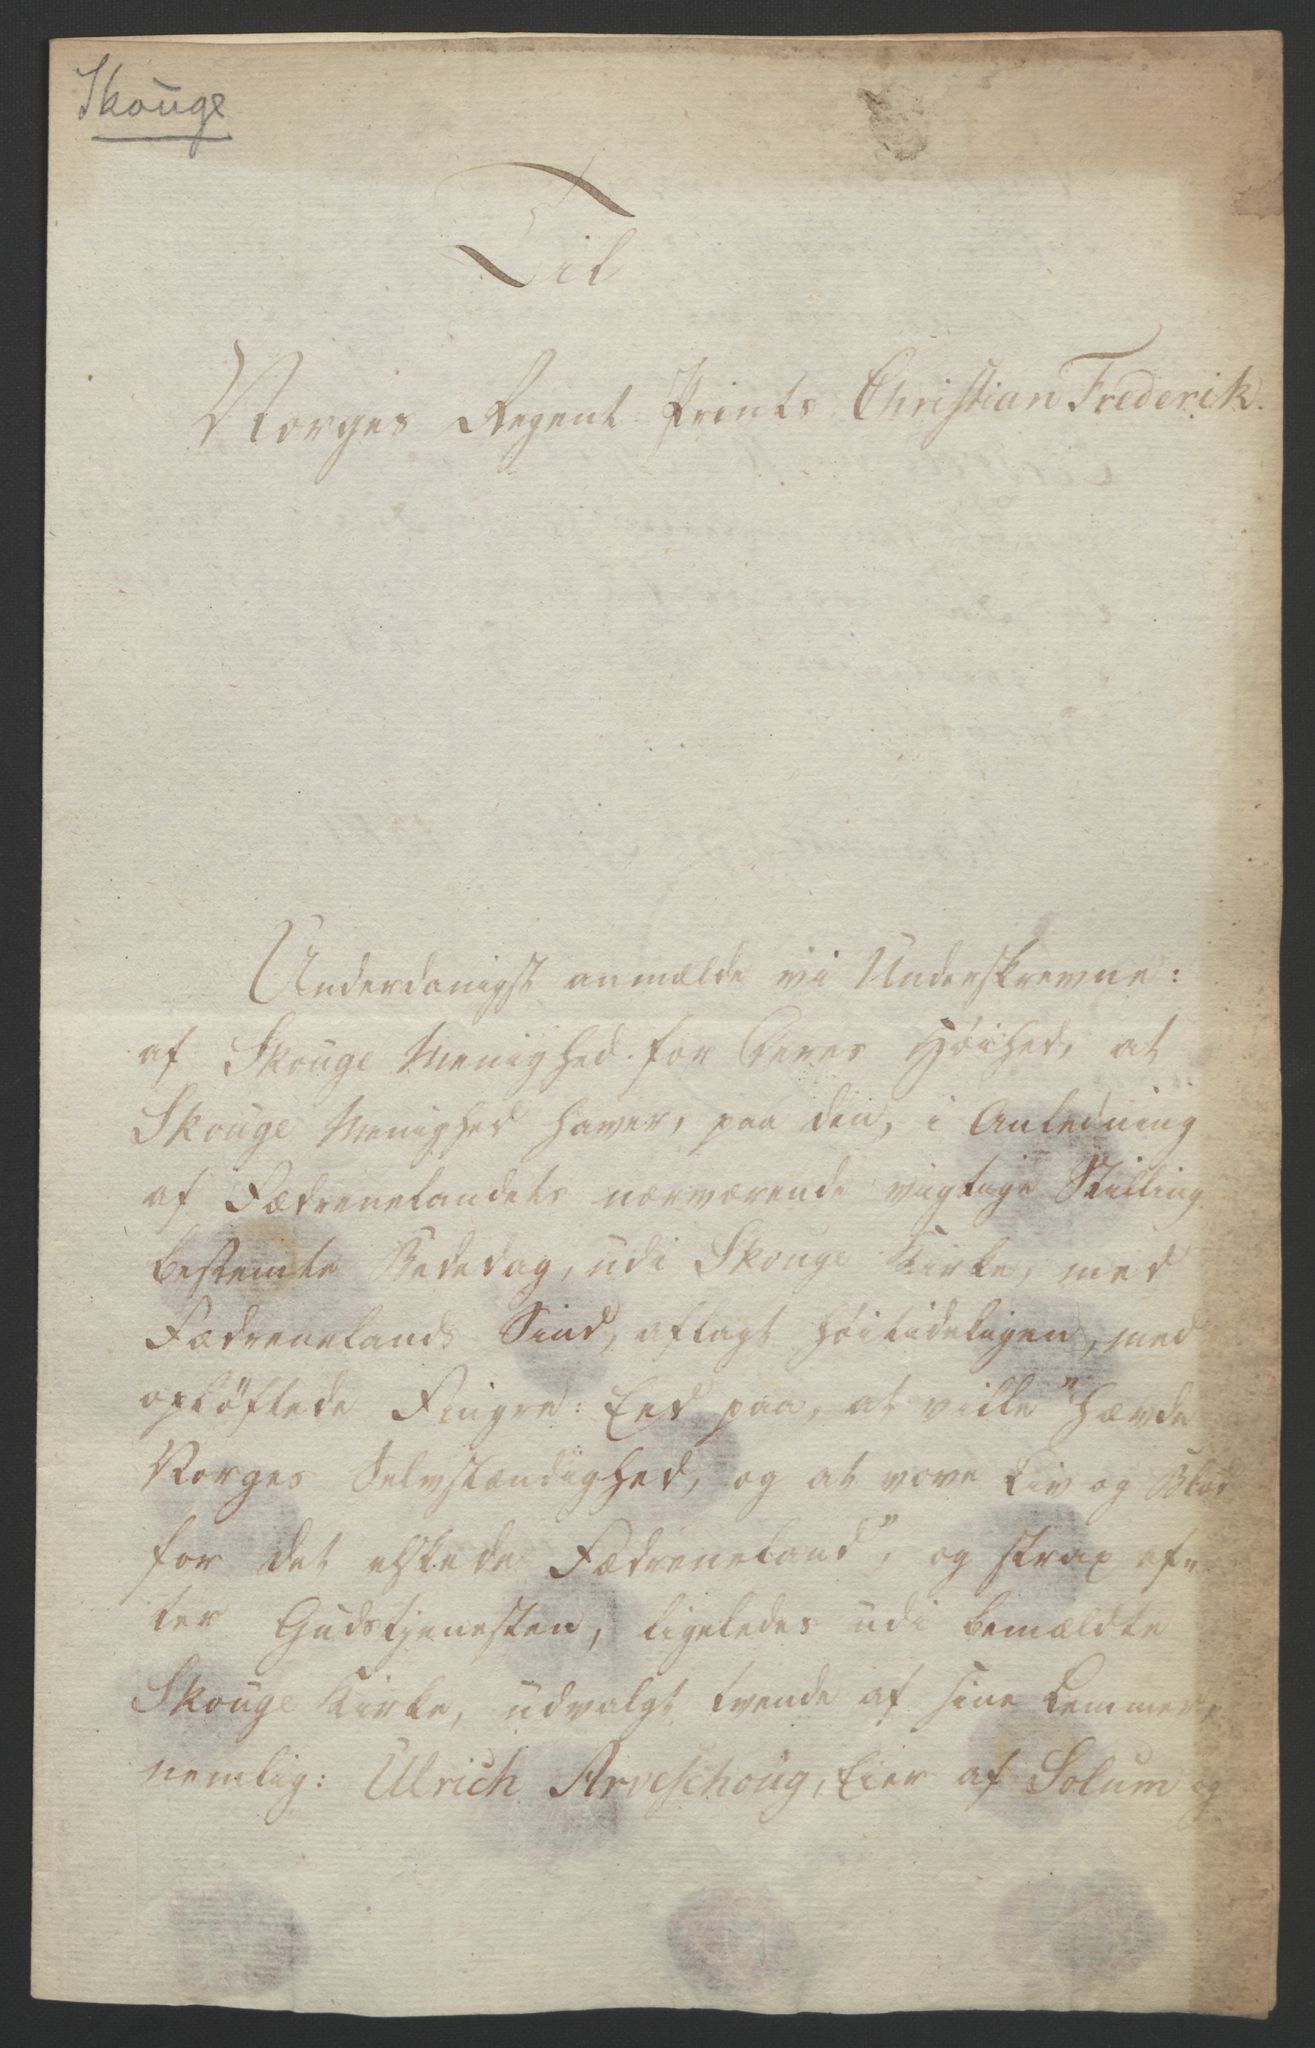 Skouge
Til
Norges Regent Prints Christian Frederik.
Underdanigst anmælde vi Underskrevne:
af Skouge Menighed for Deres Høihed, at
Skouge Menighed haver, paa den, i Anledning
af Fædrenelandets nærværende vigtige Stilling
bestemte Bededag, udi Skouge Kirke, med
Fædrenelands Sind, aflagt høitideligen, med
opløftede Fingre: Eed paa, at ville "hævde
Norges Selvstændighed, og at vove Liv og Blod
for det elskede Fædreneland", og strax ef=
ter Gudstjenesten, ligeledes udi bemældte
Skouge Kirke, udvalgt tvende af sine Lemmer,
nemlig: Ulrich Arveschoug, Eier af Solum og